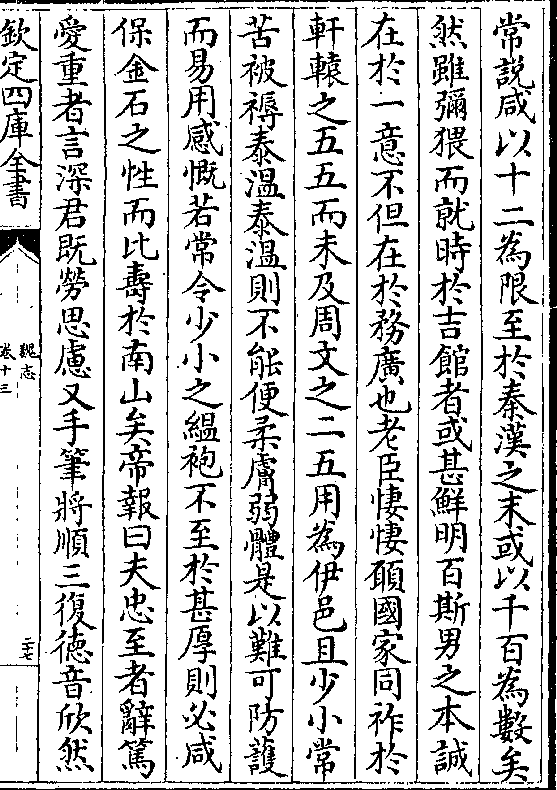 常說咸以十二為限至於秦漢之末或以千百為數矣
然雖彌猥而就時於吉館者或甚鮮明百斯男之本誠
在於一意不但在於務廣也老臣悽悽願國家同祚於
軒轅之五五而未及周文之二五用為伊邑且少小常
苦被褥泰溫泰溫則不能便柔膚弱體是以難可防護
而易用感慨若常令少小之縕袍不至於甚厚則必咸
保金石之性而比壽於南山矣帝報曰夫忠至者辭篤
愛重者言深君既勞思慮又手筆將順三復德音欣然
欽定四庫全書
魏志
卷十三
二七